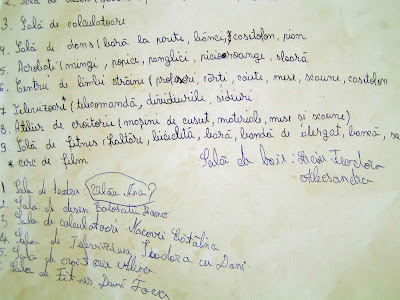 3. Sală de calculatoari
4. Sală de dans (bară la perete, bănci, casetofon, pian
5. Acrobați (mingi, popice, panglici, picioroange, sfoară
6. Centru de limbi străine (profesori, cărți, caiete, mese, scaune, casetofon
7 Televizoare (telecomandă, dividiurile, sidiuri
8. Atelier de croitorie (mașini de cusut, materiale, mese și scaune)
9. Sală de fitnes (haltăre, bicicletă, bară, bandă de alergat, bancă, sa
* cerc de film
Sală de bois: Teodora
Alecsandra
1 Sala de teatru: Ana?
2. Sala de desen,
3 Sala de calculatoari Macovei Cătălina
4. Sala de Televiziune, Teodora cu Dani
5. Sala de croitorie Alina
6 Sala de Fitnis Dani